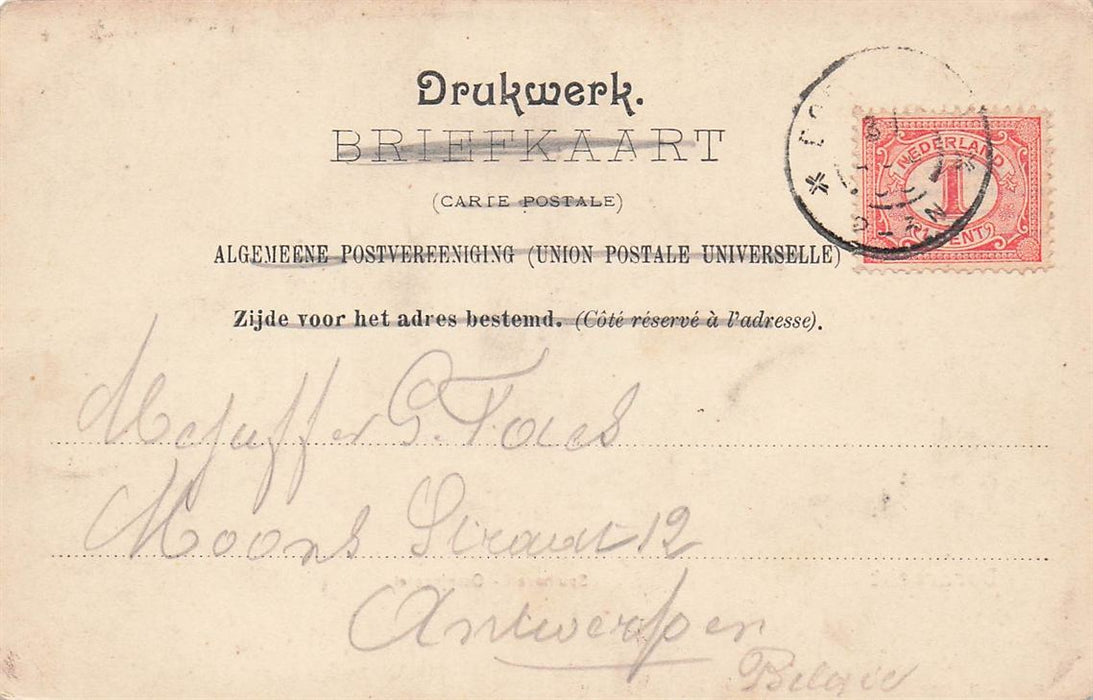 Drukwerk.
BRIEFKAART
(CARTE POSTALE)
ALGEMEENE POSTVEREENIGING (UNION POSTALE UNIVERSELLE)
Zijde voor het adres bestemd. (Côté réservé à l'adresse).
NEDERLAND
1
CENT
Mejuffer G. Faes
Moons Straat 12
Antwerpen
Belgie